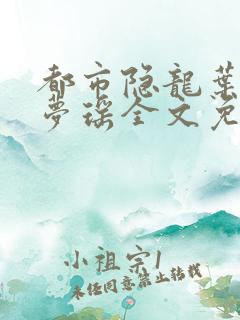 都市隐龍葉
夢瑶全文免
小祖宗1
未经同意禁止转载